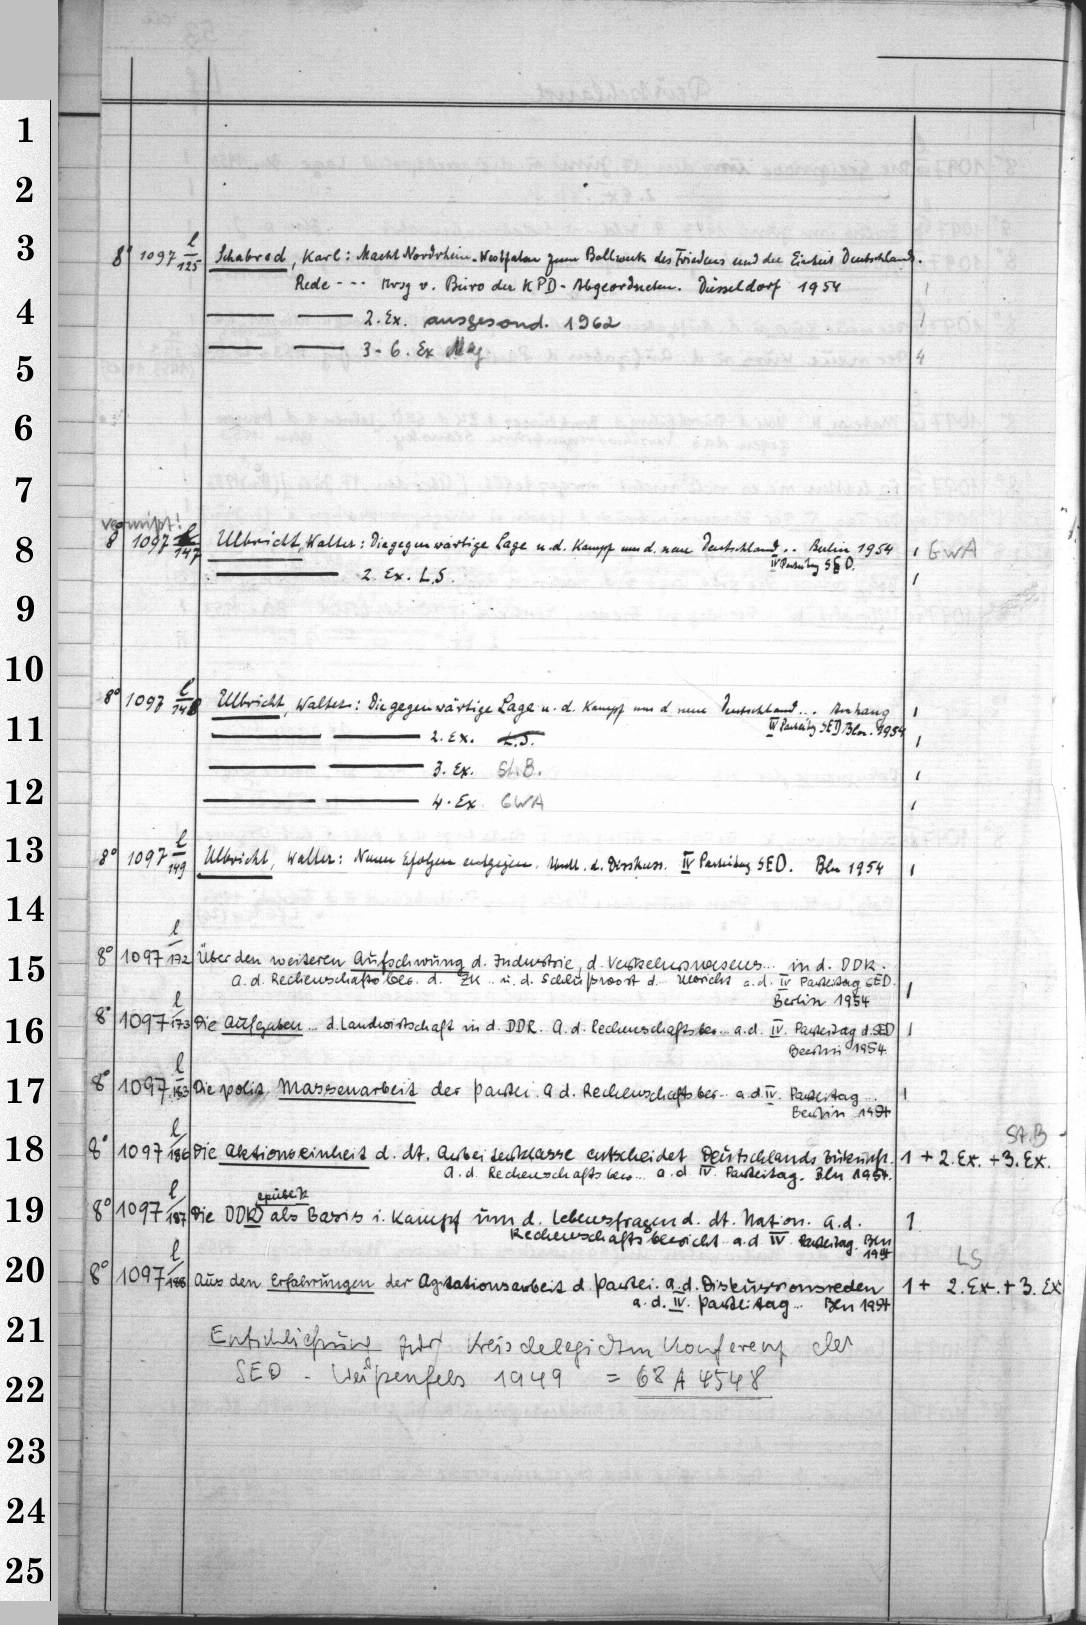 1
2
3
8° 1097 l/125 Schabrod, Karl: Macht Nordrhein-Westfalen zum Bollwerk des Friedens und der Einheit Deutschlands.
Rede --- Hrsg v. Büro der KPD-Abgeordneten. Düsseldorf 1954 1
4
2. Ex. ausgesond. 1962 1
3-6. Ex Mag 4
5
6
7
vermißt!
8
8° 1097 l/147 Ulbricht, Walter: Die gegenwärtige Lage u. d. Kampf um d. neue Deutschland .. Berlin 1954 1 GWA
IV Parteitag SED.
2. Ex. L.S. 1
9
10
8° 1097 l/148 Ulbricht, Walter: Die gegenwärtige Lage u. d. Kampf um d neue Deutschland... Anhang 1
IV Parteitg SED Bln. 1954
11
2. Ex. L.S. 1
3. Ex. St.B. 1
12
4. Ex GWA 1
13
8° 1097 l/149 Ulbricht, Walter: Neuen Erfolgen entgegen. d. Diskuss. IV Parteitag SED. Bln 1954 1
14
15
8° 1097 l/172 Über den weiteren Aufschwung d. Industrie, d. Verkehrswesens... in d. DDR.
a. d. Rechenschaftsber. d. ZK .. u. d. Schlußwort d. Ulbricht a.d. IV Parteitag SED. 1
Berlin 1954
16
8° 1097 l/173 Die Aufgaben .. d. Landwirtschaft in d. DDR. A. d. Rechenschaftsber... a.d. IV. Parteitag d. SED 1
Berlin 1954
17
8° 1097 l/183 Die polit. Massenarbeit der Partei. A. d. Rechenschaftsber.. a.d. IV. Parteitag.. 1
Berlin 1954
St.B
18
8° 1097 l/186 Die Aktionseinheit d. dt. Arbeiterklasse entscheidet Deutschlands Zukunft. 1 + 2. Ex. + 3. Ex.
A. d. Rechenschaftsber... a.d IV. Parteitag. Bln 1954.
epublik
19
8° 1097 l/187 Die DDR als Basis i. Kampf um d. Lebensfragen d. dt. Nation. A. d. 1
Rechenschaftsbericht a.d IV Parteitag. Bln
1954
LS
20
8° 1097 l/188 Aus den Erfahrungen der Agitationsarbeit d. Partei. A. d. Diskussionsreden 1 + 2. Ex. + 3. Ex
a. d. IV. Parteitag... Bln 1954
21
Entschließung zur Kreisdelegierten Konferenz der
22
SED - Weißenfels 1949 = 68 A 4548
23
24
25